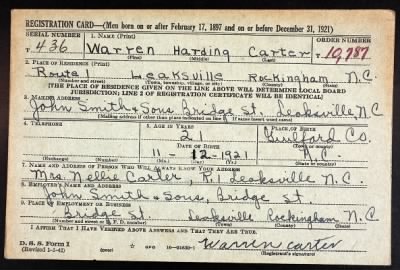 REGISTRATION CARD—(Men born on or after February 17, 1897 and on or before December 31, 1921)
SERIAL NUMBER 1. NAME (Print) ORDER NUMBER
T 436 Warren Harding Carter T 10,787
(First) (Middle) (Last)
2. PLACE OF RESIDENCE (Print)
Route 1 Leaksville Rockingham N.C.
(Number and street) (Town, township, village, or city) (County) (State)
[THE PLACE OF RESIDENCE GIVEN ON THE LINE ABOVE WILL DETERMINE LOCAL BOARD
JURISDICTION; LINE 2 OF REGISTRATION CERTIFICATE WILL BE IDENTICAL]
3. MAILING ADDRESS
John Smith & Sons Bridge St. Leaksville, N.C
4. TELEPHONE 5. AGE IN YEARS 6. PLACE OF BIRTH
21 Guilford Co.
DATE OF BIRTH (Town or county)
11 - 12 - 1921 N.C.
(Exchange) (Number) (Mo.) (Day) (Yr.) (State or country)
7. NAME AND ADDRESS OF PERSON WHO WILL ALWAYS KNOW YOUR ADDRESS
Mrs. Nellie Carter, R.1 Leaksville N.C.
8. EMPLOYER'S NAME AND ADDRESS
John Smith & Sons, Bridge St.
9. PLACE OF EMPLOYMENT OR BUSINESS
Bridge St. Leaksville Rockingham N.C
(Number and street or R. F. D. number) (Town) (County) (State)
I AFFIRM THAT I HAVE VERIFIED ABOVE ANSWERS AND THAT THEY ARE TRUE.
D. S. S. Form 1
(Revised 1-1-42) (over) GPO 16-21630-1 Warren Carter
(Registrant's signature)